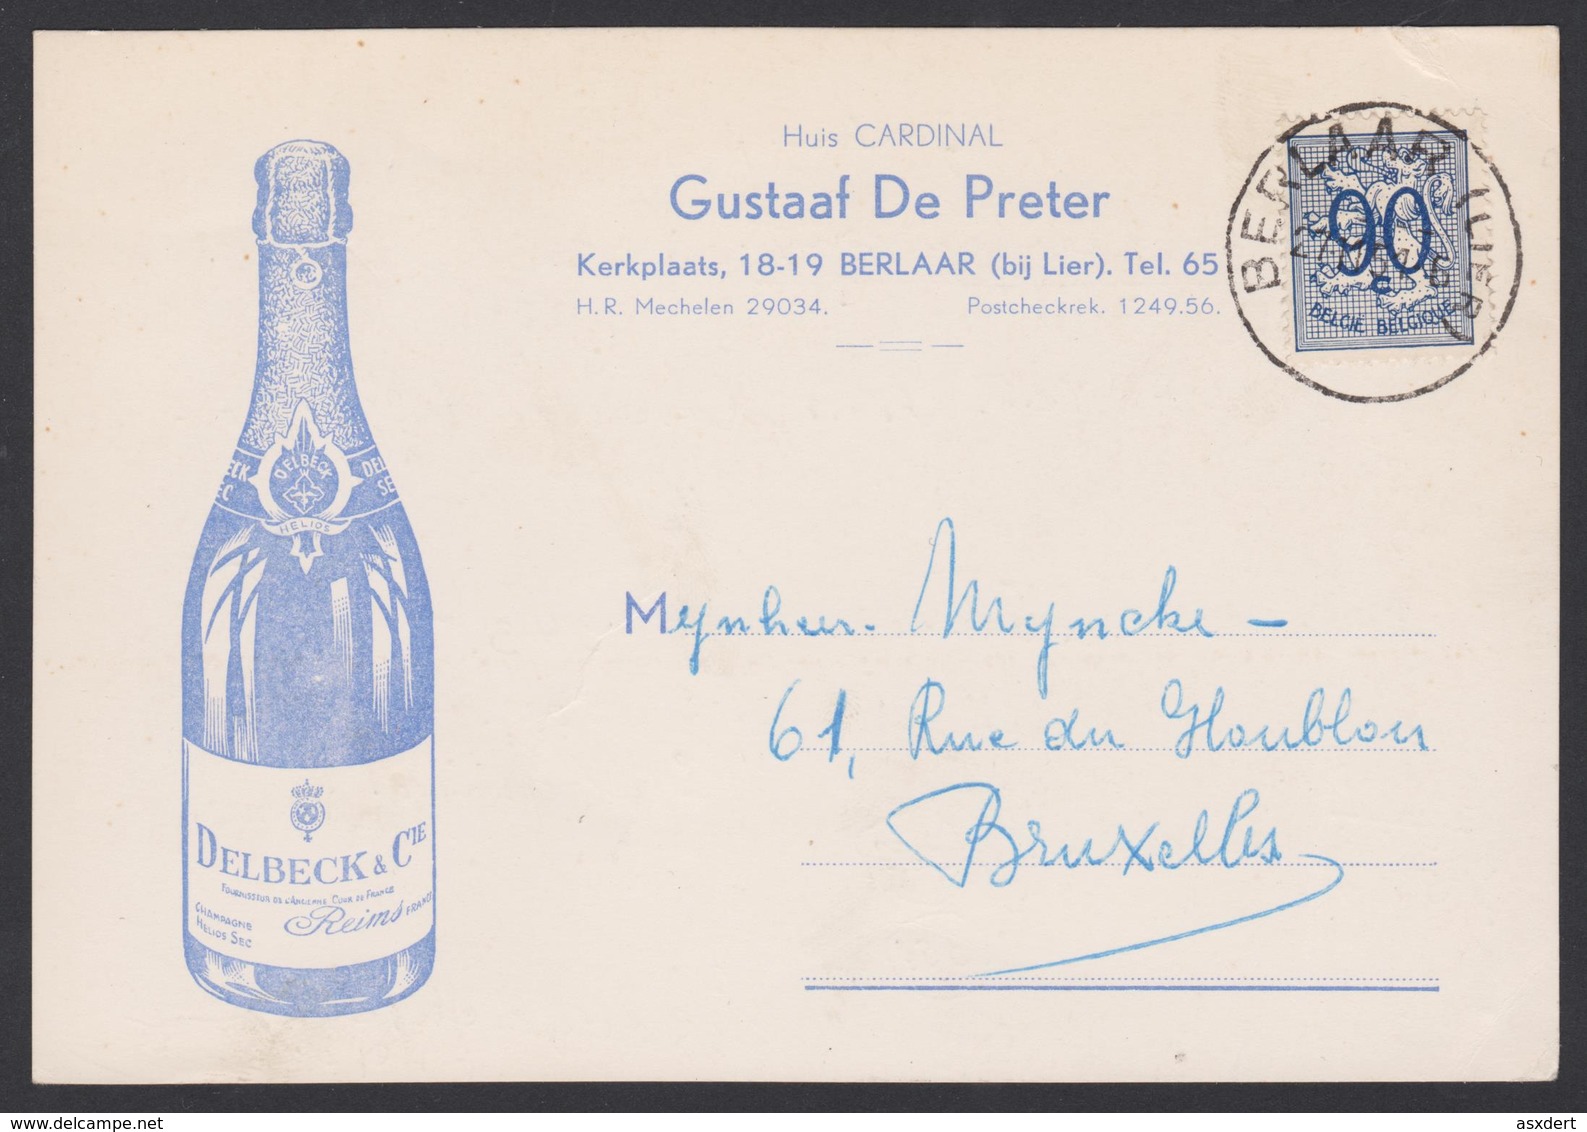 Huis CARDINAL
Gustaaf De Preter
Kerkplaats, 18-19 BERLAAR (bij Lier). Tel. 65
H.R. Mechelen 29034. Postcheckrek. 1249.56.
BERLAAR (LIER)
90
c
BELGIË BELGIQUE
ECK DEL
EC SE
DELBECK
HELIOS
Mynheer. Myncke -
61, Rue du Houblon
Bruxelles
DELBECK & CIE
FOURNISSEUR DE L'ANCIENNE COUR DE FRANCE
CHAMPAGNE Reims FRANCE
HELIOS SEC
asxdert